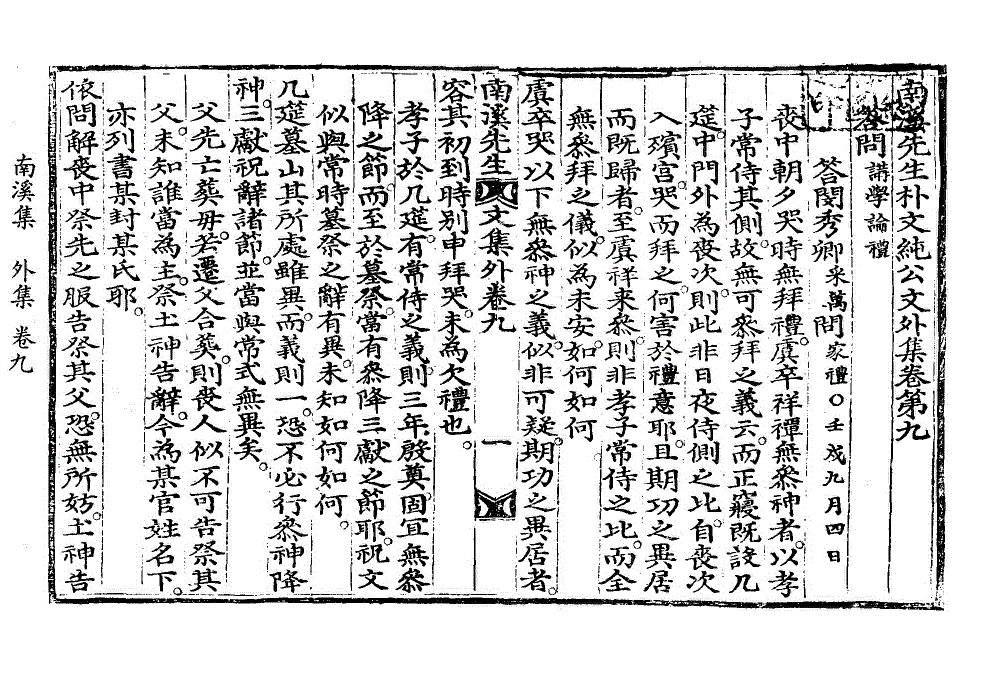 南溪先生朴文純公文外集卷第九
答問 講學論禮
答閔彥卿 采萬 問 家禮 ○壬戌九月四日
喪中朝夕哭時無拜禮。虞卒祥禫無叅神者。以孝
子常侍其側。故無可叅拜之義云。而正寢旣設几
筵。中門外為喪次。則此非日夜侍側之比。自喪次
入殯宮。哭而拜之。何害於禮意耶。且期功之異居
而旣歸者。至虞祥來叅。則非孝子常侍之比。而全
無叅拜之儀。似為未安。如何如何
虞卒哭以下無叅神之義。似非可疑。期功之異居者。
南溪先生文集外卷九
一
容其初到時別申拜哭。未為欠禮也。
孝子於几筵。有常侍之義。則三年殷奠。固宜無叅
降之節。而至於墓祭。當有叅降三獻之節耶。祝文
似與常時墓祭之辭有異。未知如何如何。
几筵墓山其所處雖異。而義則一。恐不必行叅神降
神。三獻祝辭諸節。並當與常式無異矣。
父先亡葬母。若遷父合葬。則喪人似不可告祭其
父。未知誰當為主。祭土神告辭。今為某官姓名下。
亦列書某封某氏耶。
依問解喪中祭先之服告祭其父。恐無所妨。土神告
南溪集 外集 卷九